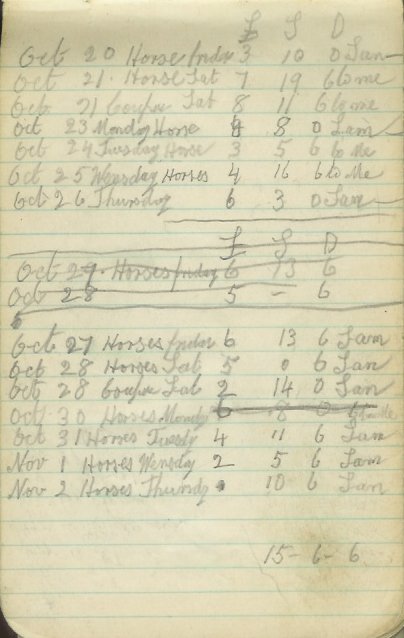 £ S D
Oct 20 Horse friday 3 10 0 Sam
Oct 21. Horse Sat 7 19 6 to me
Oct 21 Coupon Sat 8 11 6 to me
Oct 23 Monday Horse 4 8 0 Sam
Oct 24 Tuesday Horse 3 5 6 to Me
Oct 25 Wensday Horses 4 16 6 to Me
Oct 26 Thursday 6 3 0 Sam
£ S D
Oct 27. Horses friday 6 13 6
Oct 28 5 - 6
Oct 27 Horses friday 6 13 6 Sam
Oct 28 Horses Sat 5 0 6 Sam
Oct 28 Coupon Sat 2 14 0 Sam
Oct 30 Horses Monday 6 8 0
Oct 31 Horses Tuesdy 4 11 6 Sam
Nov 1 Horses Wensdy 2 5 6 Sam
Nov 2 Horses Thursdy 10 6 Sam
15 - 6 - 6